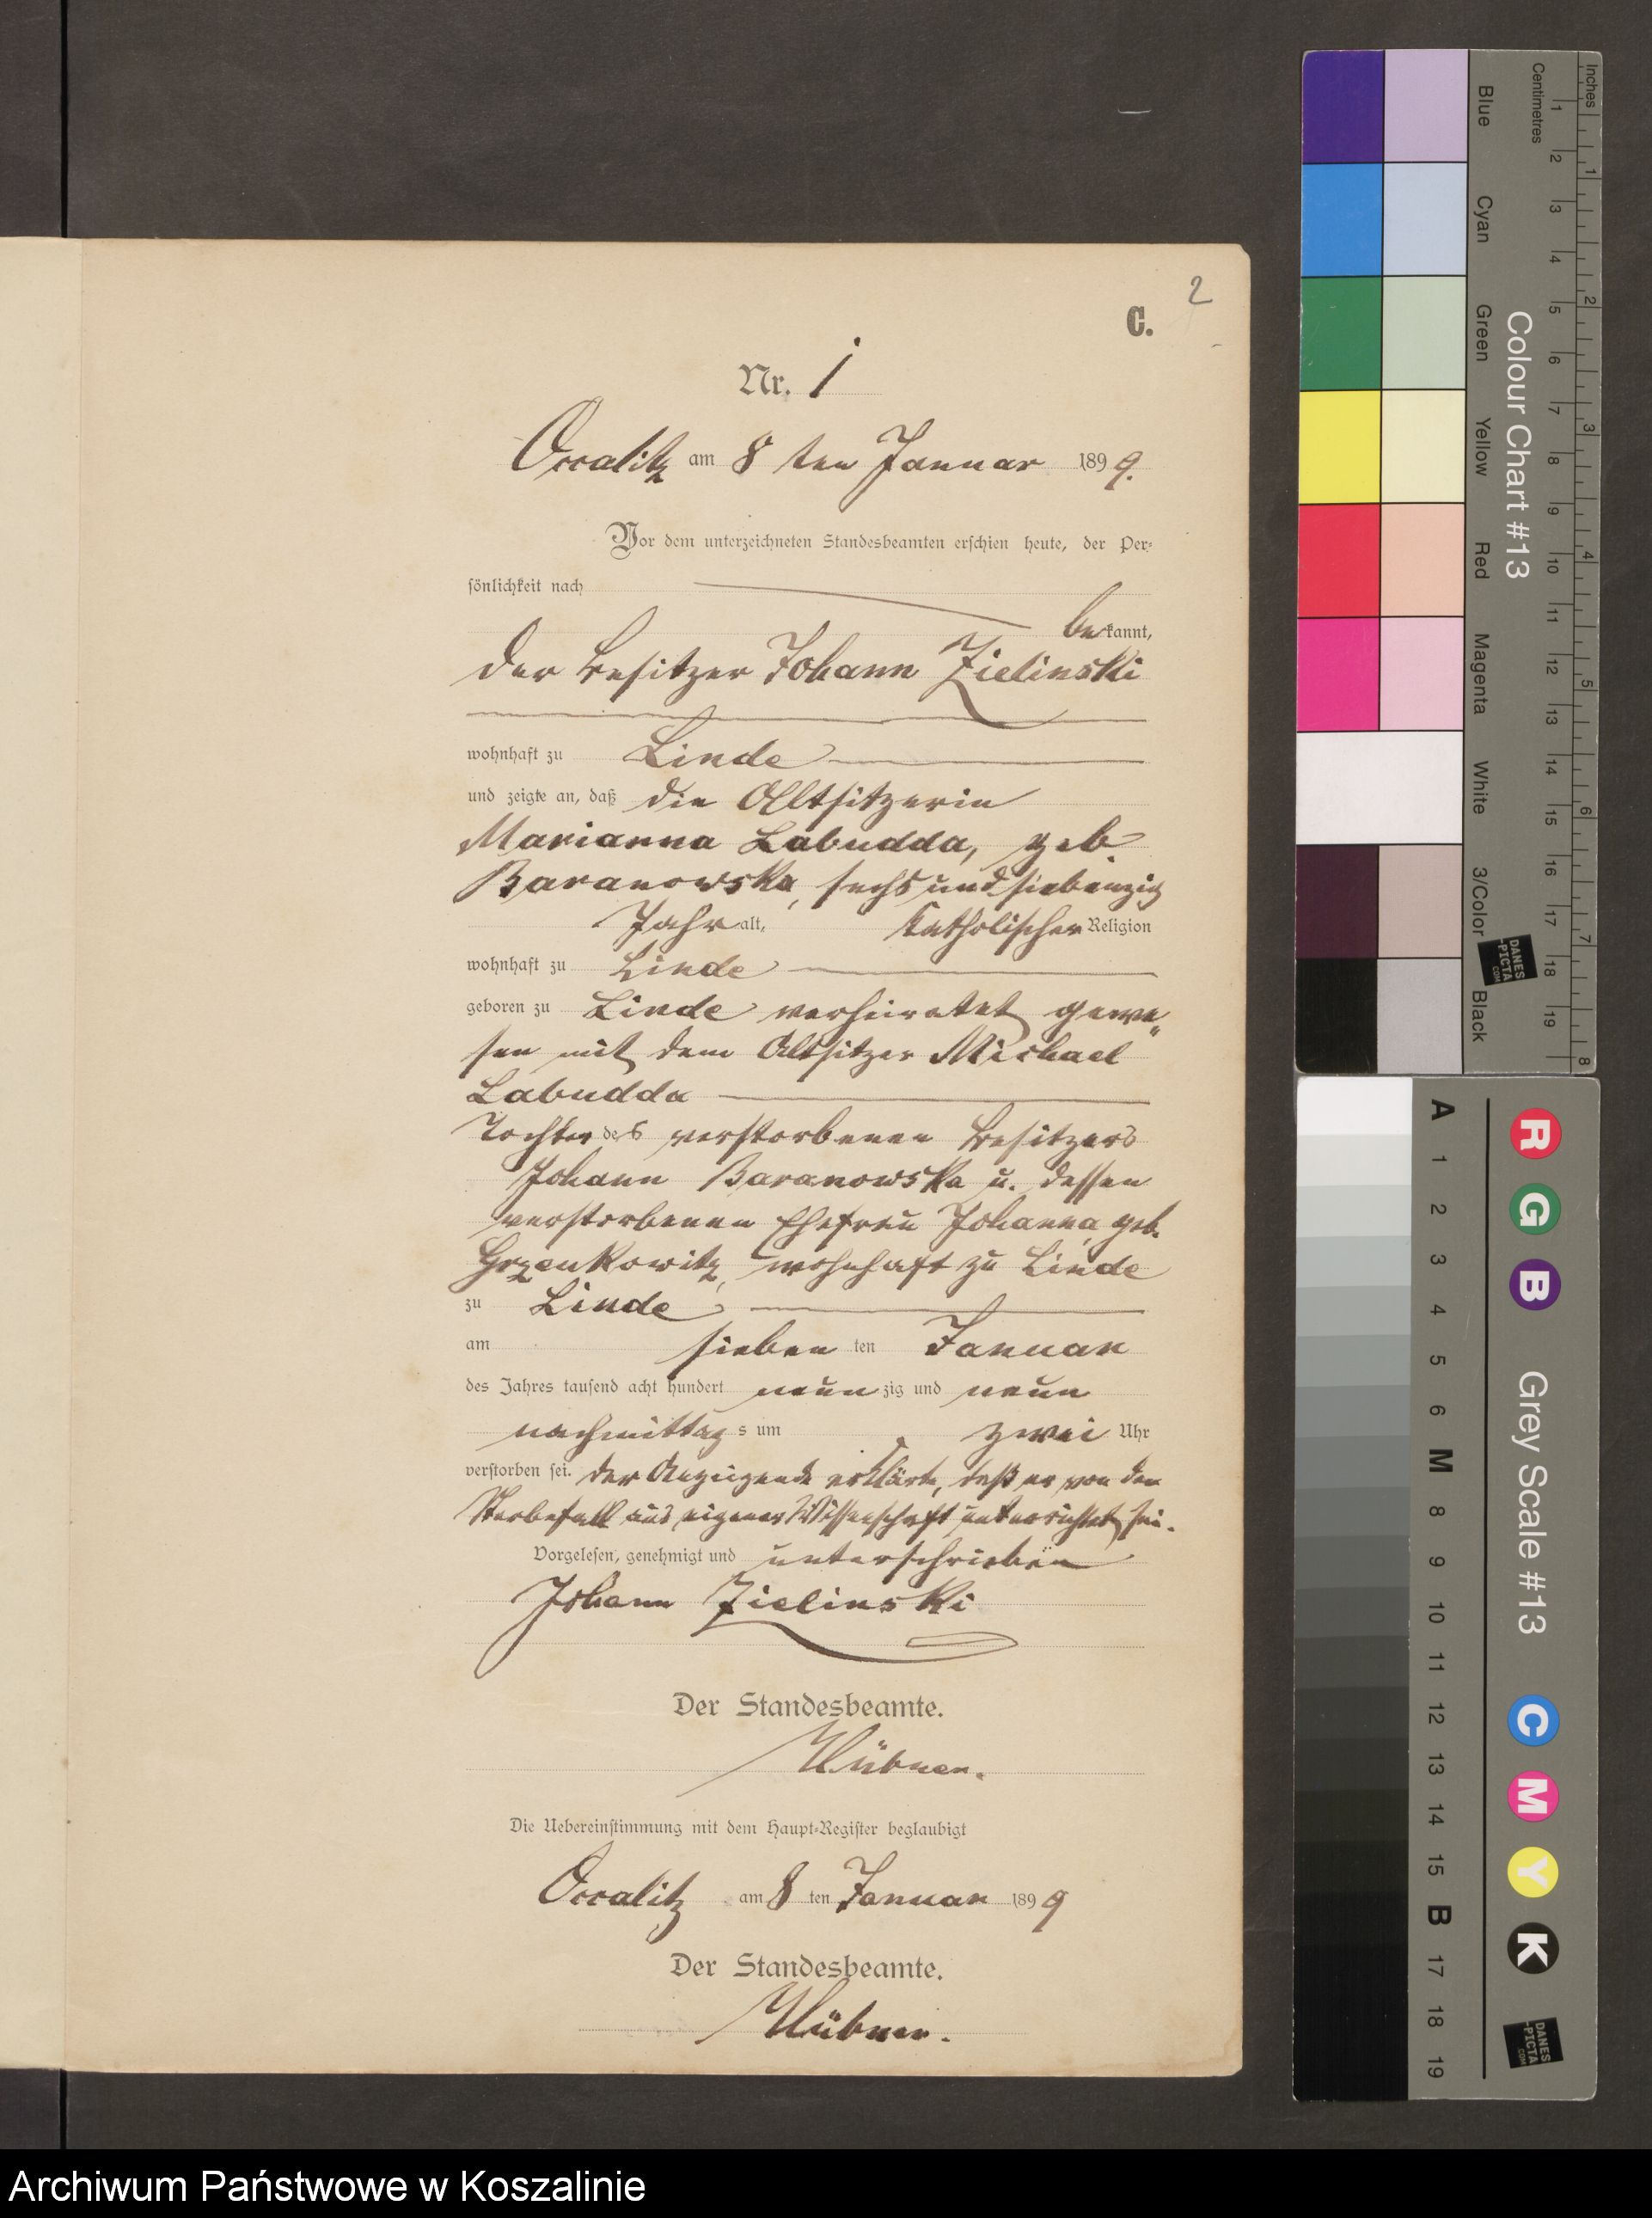 2
C.
Nr. 1
Occalitz am 8 ten Januar 1899.
Vor dem unterzeichneten Standesbeamten erschien heute, der Per-
sönlichkeit nach
bekannt,
der Besitzer Johann Zielinski
wohnhaft zu Linde
und zeigte an, daß die Altsitzerin
Marianna Labudda, geb.
Baranowska, sechs und siebenzig
Jahr alt, katholischer Religion
wohnhaft zu Linde
geboren zu Linde verheiratet gewe-
sen mit dem Altsitzer Michael
Labudda
Tochter des verstorbenen Besitzers
Johann Baranowska u. dessen
verstorbenen Ehefrau Johanna, geb.
Grzenkowitz, wohnhaft zu Linde
zu Linde
am sieben ten Januar
des Jahres tausend acht hundert neun zig und neun
nachmittag s um zwei Uhr
verstorben sei. Der Anzeigende erklärte, daß er von dem
Sterbefall aus eigener Wissenschaft unterrichtet sei.
Vorgelesen, genehmigt und unterschrieben
Johann Zielinski
Der Standesbeamte.
Hübner.
Die Uebereinstimmung mit dem Haupt-Register beglaubigt
Occalitz am 8 ten Januar 1899
Der Standesbeamte.
Hübner.
Inches 1 2 3 4 5 6 7 8
Centimetres 1 2 3 4 5 6 7 8 9 10 11 12 13 14 15 16 17 18 19
Colour Chart #13
Blue Cyan Green Yellow Red Magenta White 3/Color Black
DANES
-PICTA
.COM
R G B Grey Scale #13 C M Y K
A 1 2 3 4 5 6 M 8 9 10 11 12 13 14 15 B 17 18 19
DANES
-PICTA
.COM
Archiwum Państwowe w Koszalinie